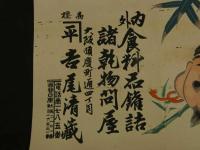 内外食料品罐詰
諸乾物問屋
大阪順慶町通四丁目
商標
平吉尾清蔵